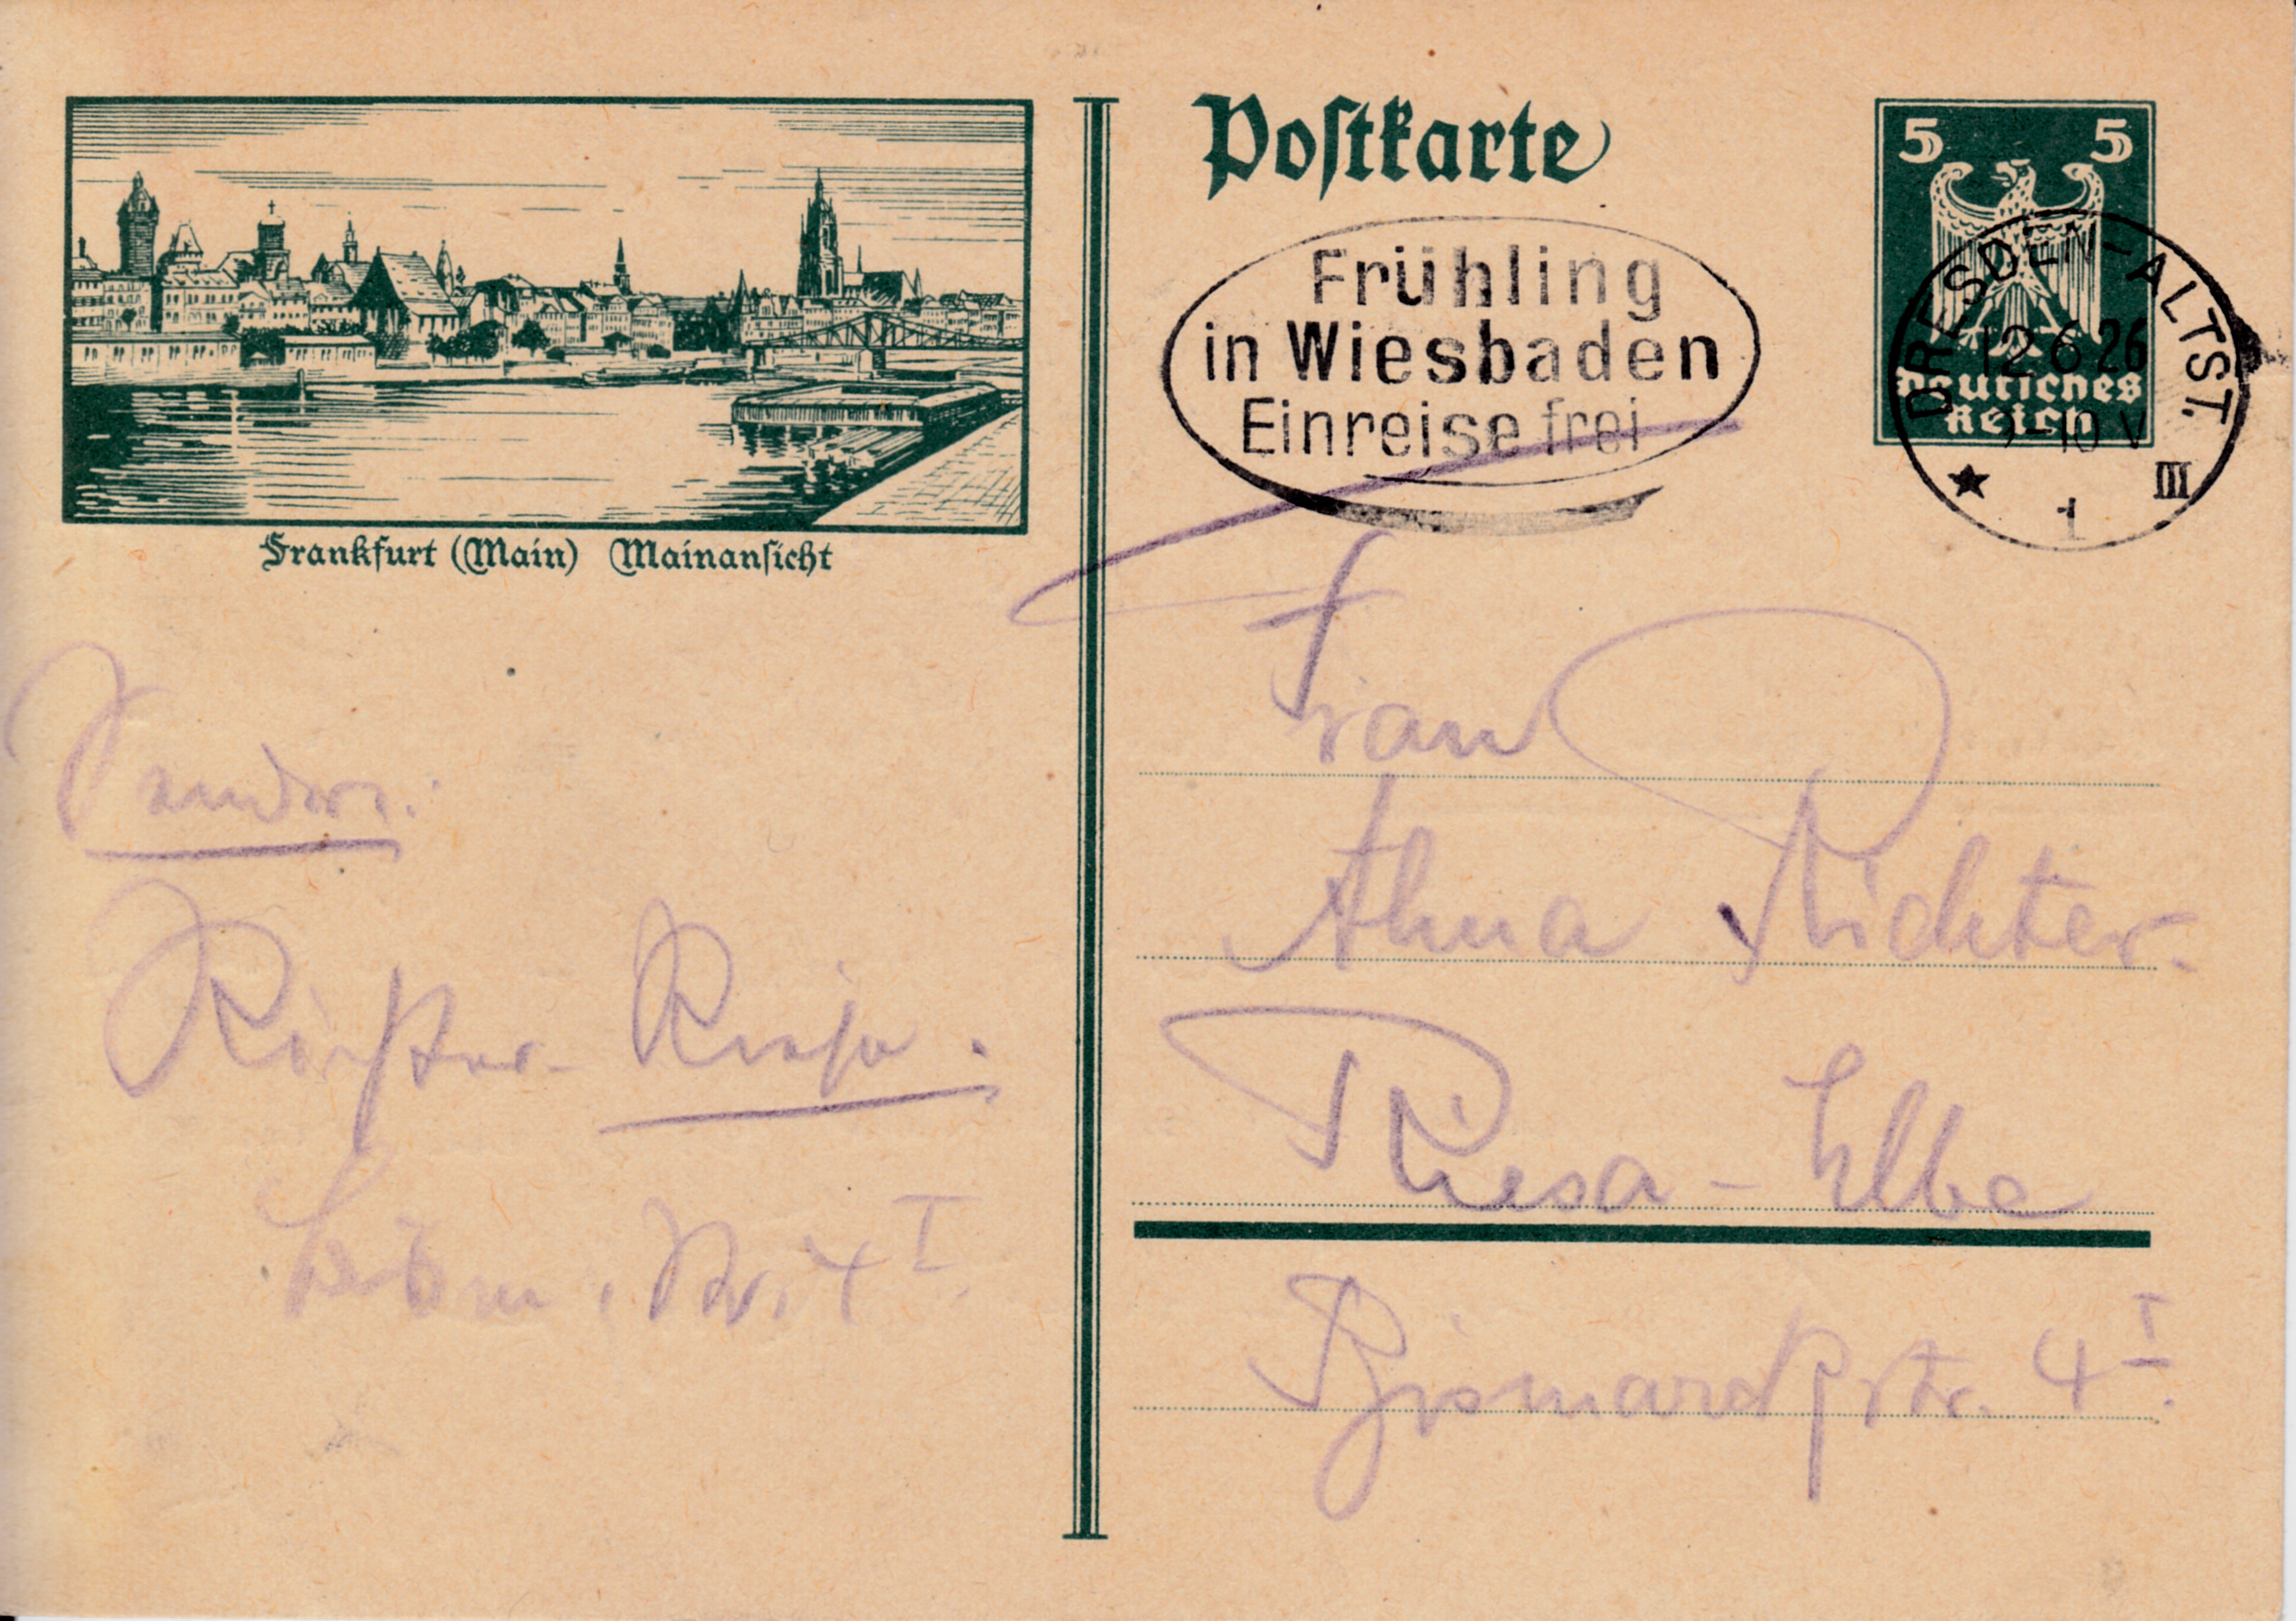 Postkarte
5 5
Deutsches
Reich
DRESDEN-ALTST.
12 6 26
9-10 V
★ 1 III
Frühling
in Wiesbaden
Einreise frei
Frankfurt (Main) Mainansicht
Frau
Alma Richter.
Riesa - Elbe
Bismarckstr. 4 I.
Richter - Riesa.
4 I.